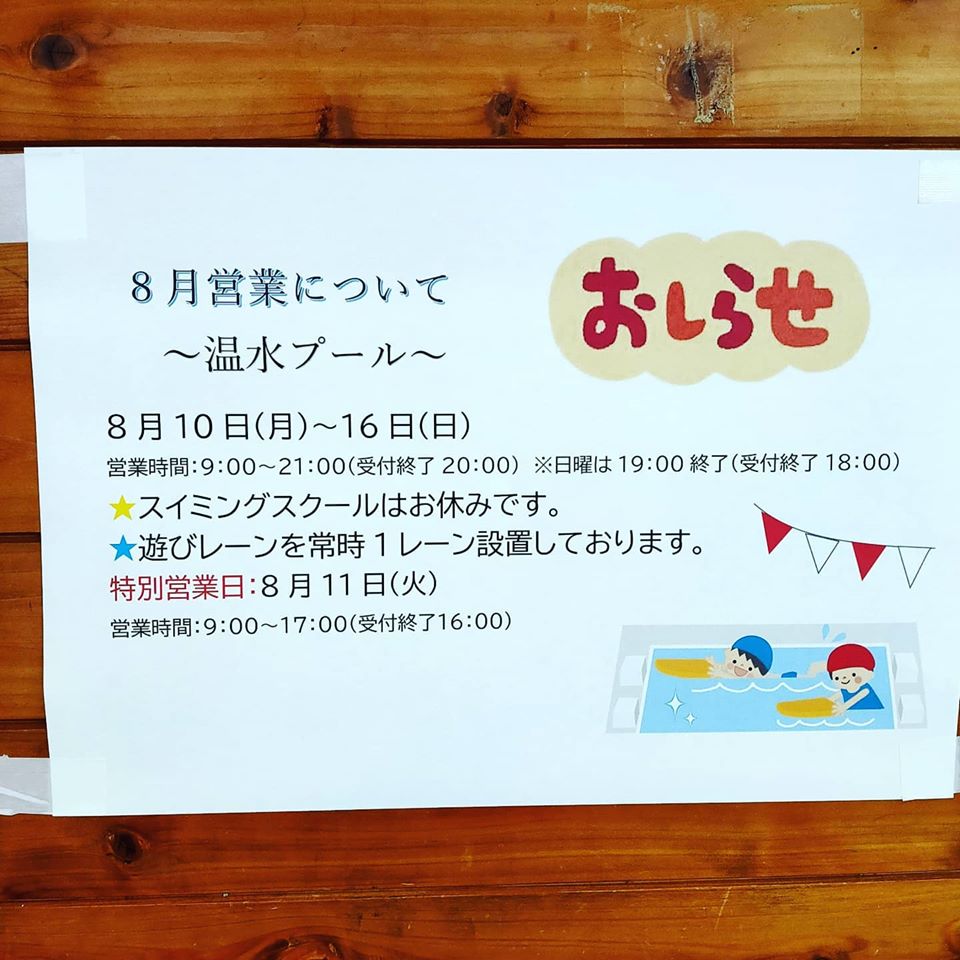 8月営業について
おしらせ
～温水プール～
8月10日(月)～16日(日)
営業時間:9:00～21:00(受付終了20:00) ※日曜は19:00終了(受付終了18:00)
★スイミングスクールはお休みです。
★遊びレーンを常時1レーン設置しております。
特別営業日:8月11日(火)
営業時間:9:00～17:00(受付終了16:00)